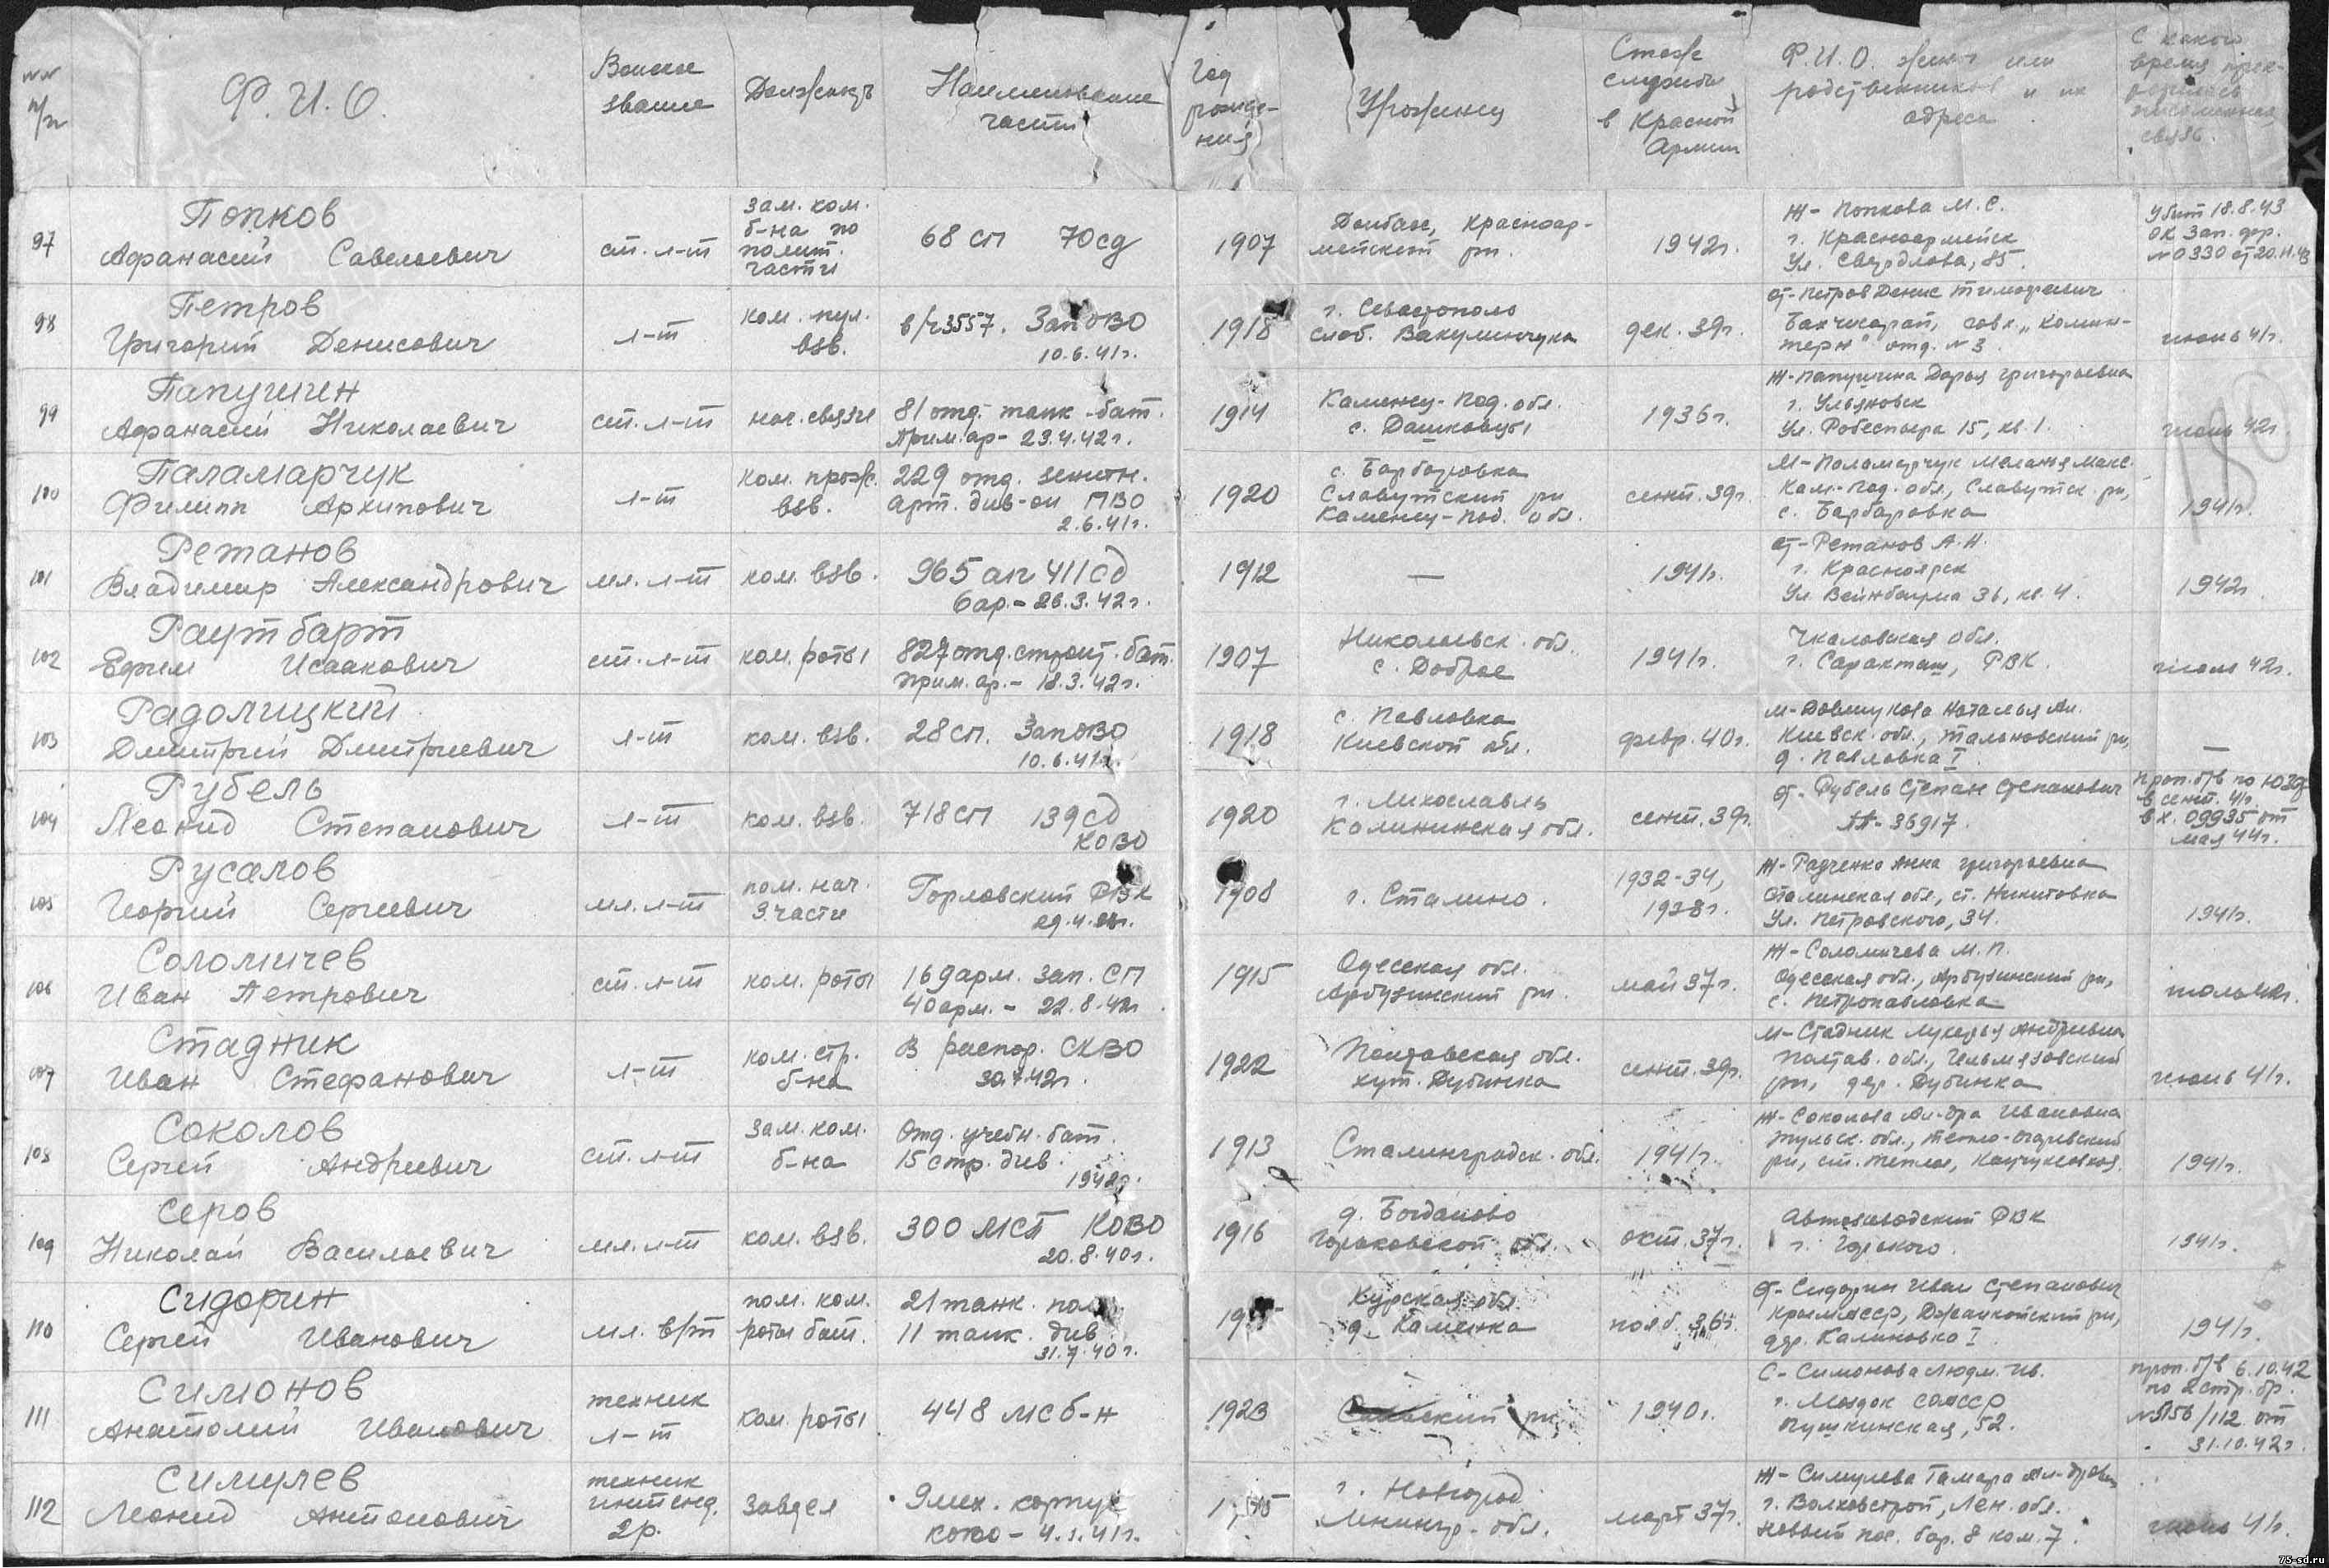 №№ п/п
Ф.И.О.
Воинское звание
Должность
Наименование части
Год рождения
Уроженец
Стаж службы в Красной Армии
Ф.И.О. жены или родственников и их адреса
С какого время прекратилась письменная связь.
97
Попков
Афанасий Савельевич
ст. л-т
зам. ком.
б-на по
полит.
части
68 сп 70 сд
1907
Донбасс, Красноар-
мейский рн.
1942г.
Ж- Попкова М. С.
г. Красноармейск
Ул. Свердлова, 85.
Убит 18.8.43
ОК Зап. фр.
№ 0330 от 20.11.43
98
Петров
Григорий Денисович
л-т
ком. пул.
взв.
в/ч 3557. ЗапОВО
10.6.41г.
1918
г. Севастополь
слоб. Вакуленчука
дек. 39г.
от- Петров Денис Тимофеевич
Бахчисарай, совх. „Комин-
терн" отд. №3.
июнь 41г.
99
Папушин
Афанасий Николаевич
ст. л-т
нач. связи
81 отд. танк. бат.
Прим. ар- 23.4.42г.
1914
Каменец-Под. обл.
с. Дашковцы
1936г.
Ж- Папушина Дарья Григорьевна
г. Ульяновск
Ул. Робеспьера 15, кв 1.
июнь 42г.
100
Паламарчук
Филипп Архипович
л-т
ком. прож.
взв.
229 отд. зенитн.
арт. див-он ПВО
2.6.41г.
1920
с. Барбаровка
Славутский рн
Каменец-Под. обл.
сент. 39г.
М- Паламарчук Меланья Макс.
Кам-Под. обл, Славутск рн,
с. Барбаровка
1941г.
101
Ретанов
Владимир Александрович
мл. л-т
ком. взв.
965 ап 411 сд
6 ар. - 26.3.42г.
1912
—
1941г.
от- Ретанов А.Н.
г. Красноярск
Ул Вейнбаума 36, кв. 4.
1942г.
102
Раутбарт
Ефим Исаакович
ст. л-т
ком. роты
827 отд. строит. бат.
Прим. ар. - 18.3.42г.
1907
Николаевск. обл.
с. Доброе
1941г.
Чкаловская обл.
г. Саракташ, РВК.
июль 42г.
103
Радолицкий
Дмитрий Дмитриевич
л-т
ком. взв.
28 сп. ЗапОВО
10.6.41г.
1918
с. Павловка
Киевской обл.
февр. 40г.
Киевск. обл., Тальновский рн,
д. Павловка I.
—
104
Рубель
Леонид Степанович
л-т
ком. взв.
718 сп 139 сд
КОВО
1920
г. Лихославль
Калининская обл.
сент. 39г.
от- Рубель Степан Степанович
АА- 36917.
Проп. б/в по ЮЗФ
в сент. 41г.
вх. 09935 от
мая 44г.
105
Русалов
Георгий Сергеевич
мл. л-т
пом. нач.
3 части
Горловский РВК
1908
г. Сталино.
1932-34,
1938г.
Ж- Радченко Анна Григорьевна
Сталинская обл, ст. Никитовка
Ул. Петровского, 34.
1941г.
106
Соломичев
Иван Петрович
ст. л-т
ком. роты
169 арм. зап. СП
40 арм. - 22.8.42г
1915
Одесская обл.
Арбузинский рн.
май 37г.
Ж- Соломичева М. П.
Одесская обл., Арбузинский рн,
с. Петропавловка
107
Стадник
Иван Стефанович
л-т
ком. стр.
б-на
В распор. СКВО
30.7.42г.
1922
Полтавская обл.
хут. Дубинка
сент. 39г.
М- Стадник Лукерья Андреевна
Полтав. обл., Гельмязовский
рн, дер. Дубинка
июнь 41г.
108
Соколов
Сергей Андреевич
ст. л-т
зам. ком.
б-на
Отд. учебн. бат.
15 стр. див.
1942г.
1913
Сталинградск. обл.
1941г.
Ж- Соколова Ал-дра Ивановна
Тульск. обл., Тепло-Огаревский
рн, ст. Теплое,
1941г.
109
Серов
Николай Васильевич
мл. л-т
ком. взв.
300 МСП КОВО
20.8.40г.
1916
д. Богданово
Горьковской обл.
окт. 37г.
Автозаводский РВК
г. Горького.
1941г.
110
Сидорин
Сергей Иванович
мл. в/т
пом. ком.
роты бат.
21 танк. полк
11 танк. див.
31.7.40г.
Курская обл
д. Каменка
нояб. 36г.
От- Сидорин Иван Степанович
КрымАССР, Джанкойский рн,
дер. Калиновка I.
1941г.
111
Симонов
Анатолий Иванович
техник
л-т
ком. роты
448 мсб-н
1923
Сальский рн
1940г.
С- Симонова Людм. Ив.
г. Моздок СОАССР
Пушкинская, 52.
проп. б/в 6.10.42
по 2 стр. бр.
№ 5156/112 от
31.10.42г.
112
Симулев
Леонид Антонович
техник
интенд.
2 р.
Завдел
9 мех. корпус
КОВО - 4.1.41г.
г. Новгород
Ленингр. обл.
март 37г.
Ж- Симулева Тамара Ал-дровна
г. Волховстрой, Лен. обл.
Новый пос. бар. 8 ком. 7.
июнь 41г.
75-sd.ru